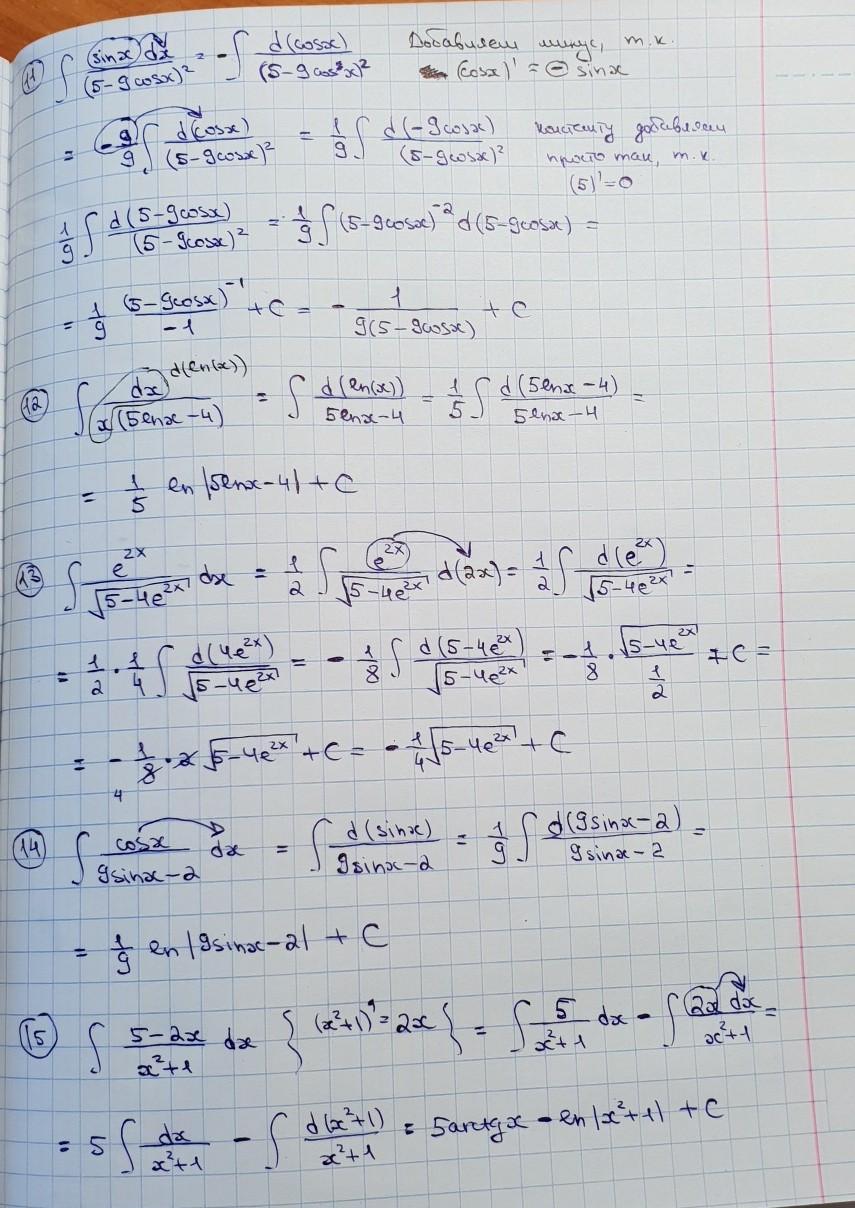 11 ∫ sinx dx / (5-9cosx)² = -∫ d(cosx) / (5-9cos²x)² Добавляем минус, т.к.
(cosx)' = - sinx
= -9/9 ∫ d(cosx) / (5-9cosx)² = 1/9 ∫ d(-9cosx) / (5-9cosx)² константу добавляем
просто так, т.к.
(5)'=0
1/9 ∫ d(5-9cosx) / (5-9cosx)² = 1/9 ∫ (5-9cosx)⁻² d(5-9cosx) =
= 1/9 (5-9cosx)⁻¹ / -1 + C = - 1 / 9(5-9cosx) + C
12 ∫ dx / x(5lnx-4) d(ln(x)) = ∫ d(ln(x)) / 5lnx-4 = 1/5 ∫ d(5lnx-4) / 5lnx-4 =
= 1/5 ln|5lnx-4| + C
13 ∫ e²ˣ / √(5-4e²ˣ) dx = 1/2 ∫ e²ˣ / √(5-4e²ˣ) d(2x) = 1/2 ∫ d(e²ˣ) / √(5-4e²ˣ) =
= 1/2 · 1/4 ∫ d(4e²ˣ) / √(5-4e²ˣ) = - 1/8 ∫ d(5-4e²ˣ) / √(5-4e²ˣ) = -1/8 · √(5-4e²ˣ) / 1/2 + C =
= - 1/8 · 2 √(5-4e²ˣ) + C = - 1/4 √(5-4e²ˣ) + C
4
14 ∫ cosx / 9sinx-2 dx = ∫ d(sinx) / 9sinx-2 = 1/9 ∫ d(9sinx-2) / 9sinx-2 =
= 1/9 ln|9sinx-2| + C
15 ∫ 5-2x / x²+1 dx { (x²+1)' = 2x } = ∫ 5 / x²+1 dx - ∫ 2x dx / x²+1 =
= 5 ∫ dx / x²+1 - ∫ d(x²+1) / x²+1 = 5arctgx - ln|x²+1| + C